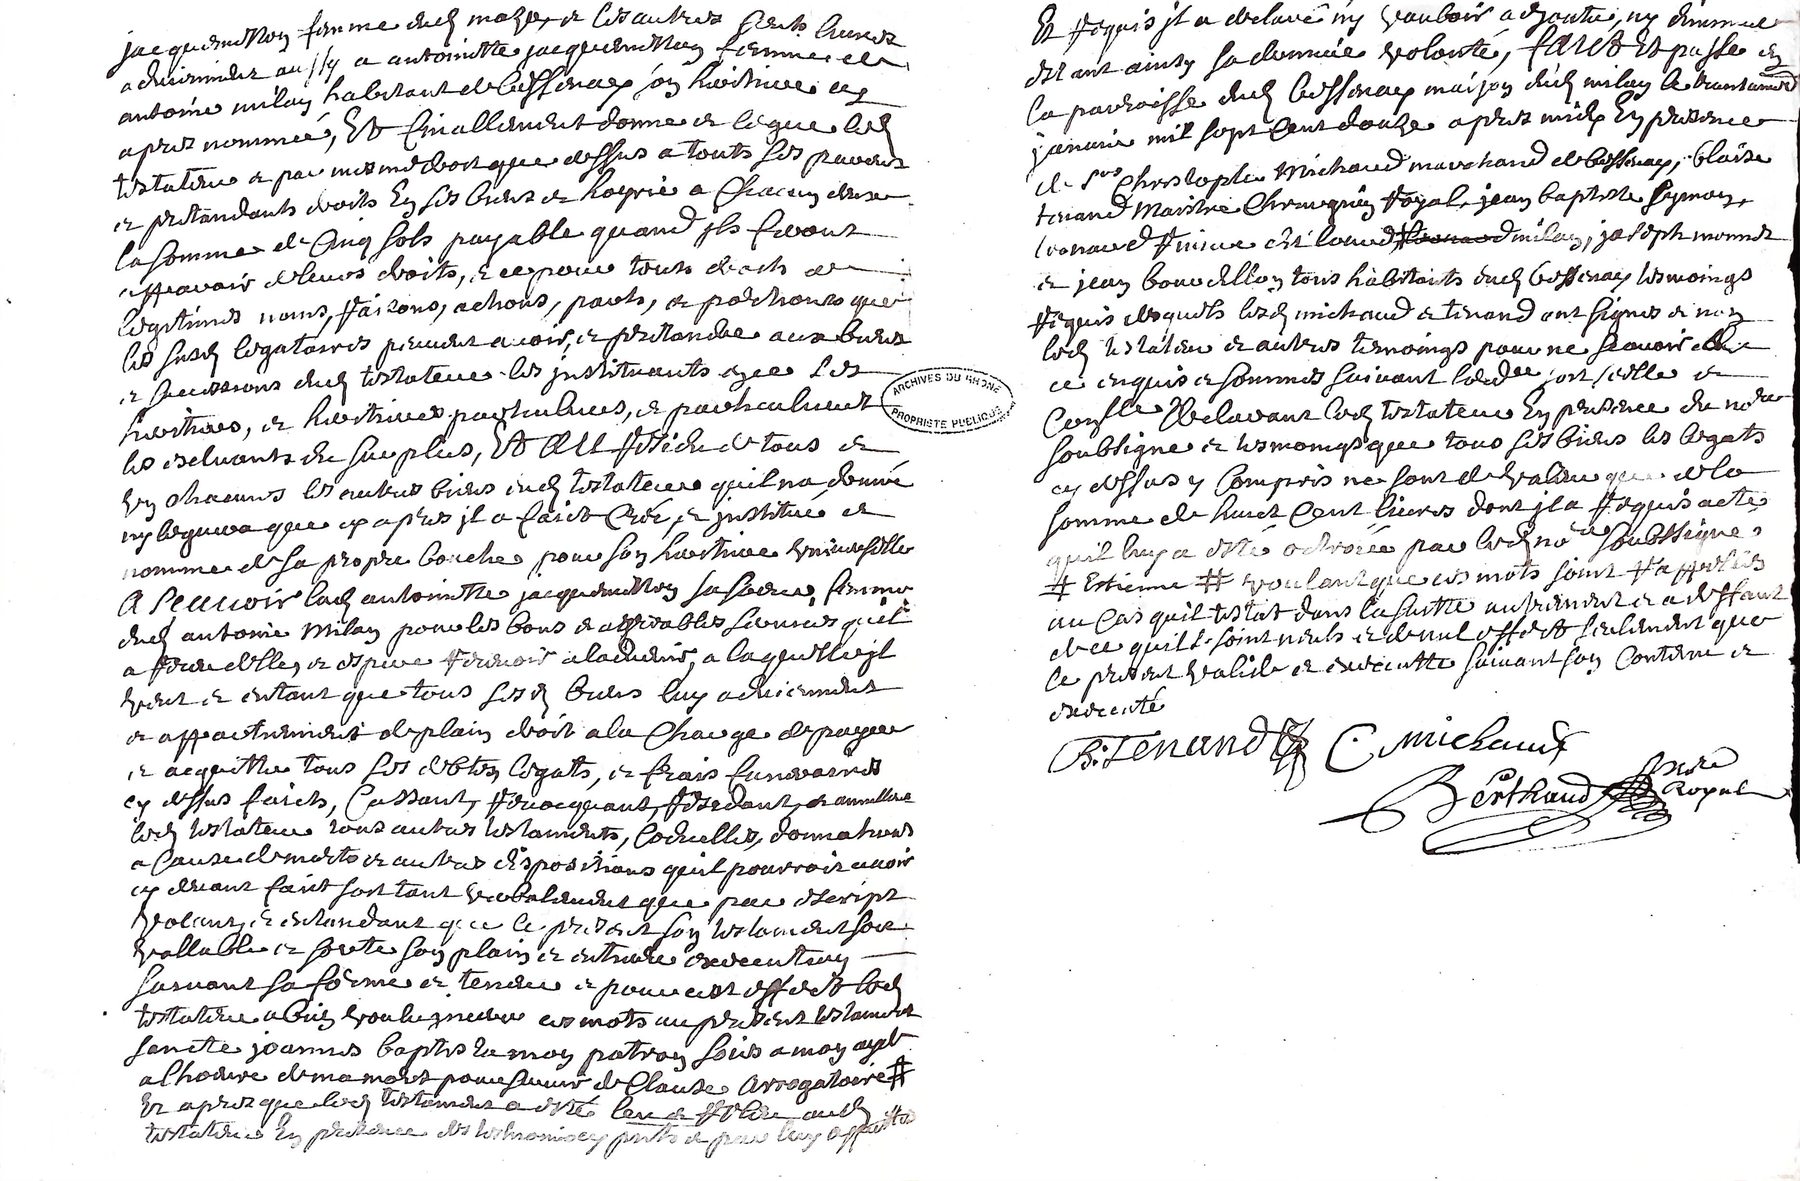 jacquemetton femme dud mazet, et les autres cents livres
adviendront aussy a antoinette jacquemetton femme de
antoine milan habitant de bessenay son heritiere cy
apres nommée, Et finallement donne et legue led
testateur et par mesme droit que dessus a touts ses parents
et pretandants droits En ses biens et hoyrie a Chacun deux
la somme de Cinq sols payable quand ils feront
apparoir de leurs droits, et ce pour touts droits de
legitimes noms, raisons, actions, parts, et portions que
les susd legataires peuvent avoir, et pretandre aux biens
et successions dud testateur les instituants avec ses
heritiers, et heritieres particulieres, et particulierement
les excluants du surplus, Et AU Residu de tous et
un chacuns les autres biens dud testateur quil na donné
ny leguera que cy apres il a faict Créé, et institué et
nommé de sa propre bouche pour son heritiere universelle
A Scavoir lad antoinette jacquemetton sa soeur, femme
dud antoine Milan pour les bons et agreables services quil
a receu delle, et espere recevoir a ladvenir, a laquelle il
veut et entant que tous sesd biens luy adviennent
et appartiennent de plain droit a la Charge de payer
et acquitter tous ses debtes legats, et frais funeraires
cy dessus faicts, Cassant, revocquant, et annullant
led testateur tous autres testaments, Codicilles, donnations
a Cause de mort et autres dispositions quil pourroit avoir
cy devant faict soit tant verbalement que par escript
volant, et entandant que le present son testament soit
vallable et sorte son plain et entiere execution
suivant sa forme et teneur et pour cest effect led
testateur a bien voulu inserer ces mots au present testament
sancte joannes baptista mon patron sois a mon ayde
a lheure de ma mort pour servir de Clause arrogatoire #
Et apres que led testament a esté leu et releu aud
testateur En presence des tesmoins cy
Et requis il a declaré ny vouloir adjouter, ny diminuer
estant ainsy sa derniere volonté, faict Et passé en
la parroisse dud bessenay maison dud milan le
janvier mil sept cent douze apres midy En presence
de srs Christophle Michaud marchand de bessenay, blaise
tenand Maistre Chirurgien Royal, jean baptiste
milan, joseph monnet
et jean bourdillon tous habitants dud bessenay tesmoings
requis desquels lesd michaud et tenand ont signes et non
led testateur et autres temoings pour ne scavoir de
ce enquis et sommés suivant lordce soit scellé et
Declarant led testateur En presence du nore
soubsigne et tesmoings que tous ses biens les legats
cy dessus y Compris ne sont de valeur que de la
somme de huict Cent livres dont il a requis acte
quil luy a esté octroiée par led nore soubsigne,
# Estienne # voulant que ces mots soint rappellés
au Cas quil testat dans la suitte autrement et a deffaut
de ce quils soint nuls et de nul effect seulement que
le present valide et execute suivant son Contenu et
executé
B: Tenand C. Michaud
Berthaud nore
Royal
ARCHIVES DU RHONE
PROPRIETE PUBLIQUE